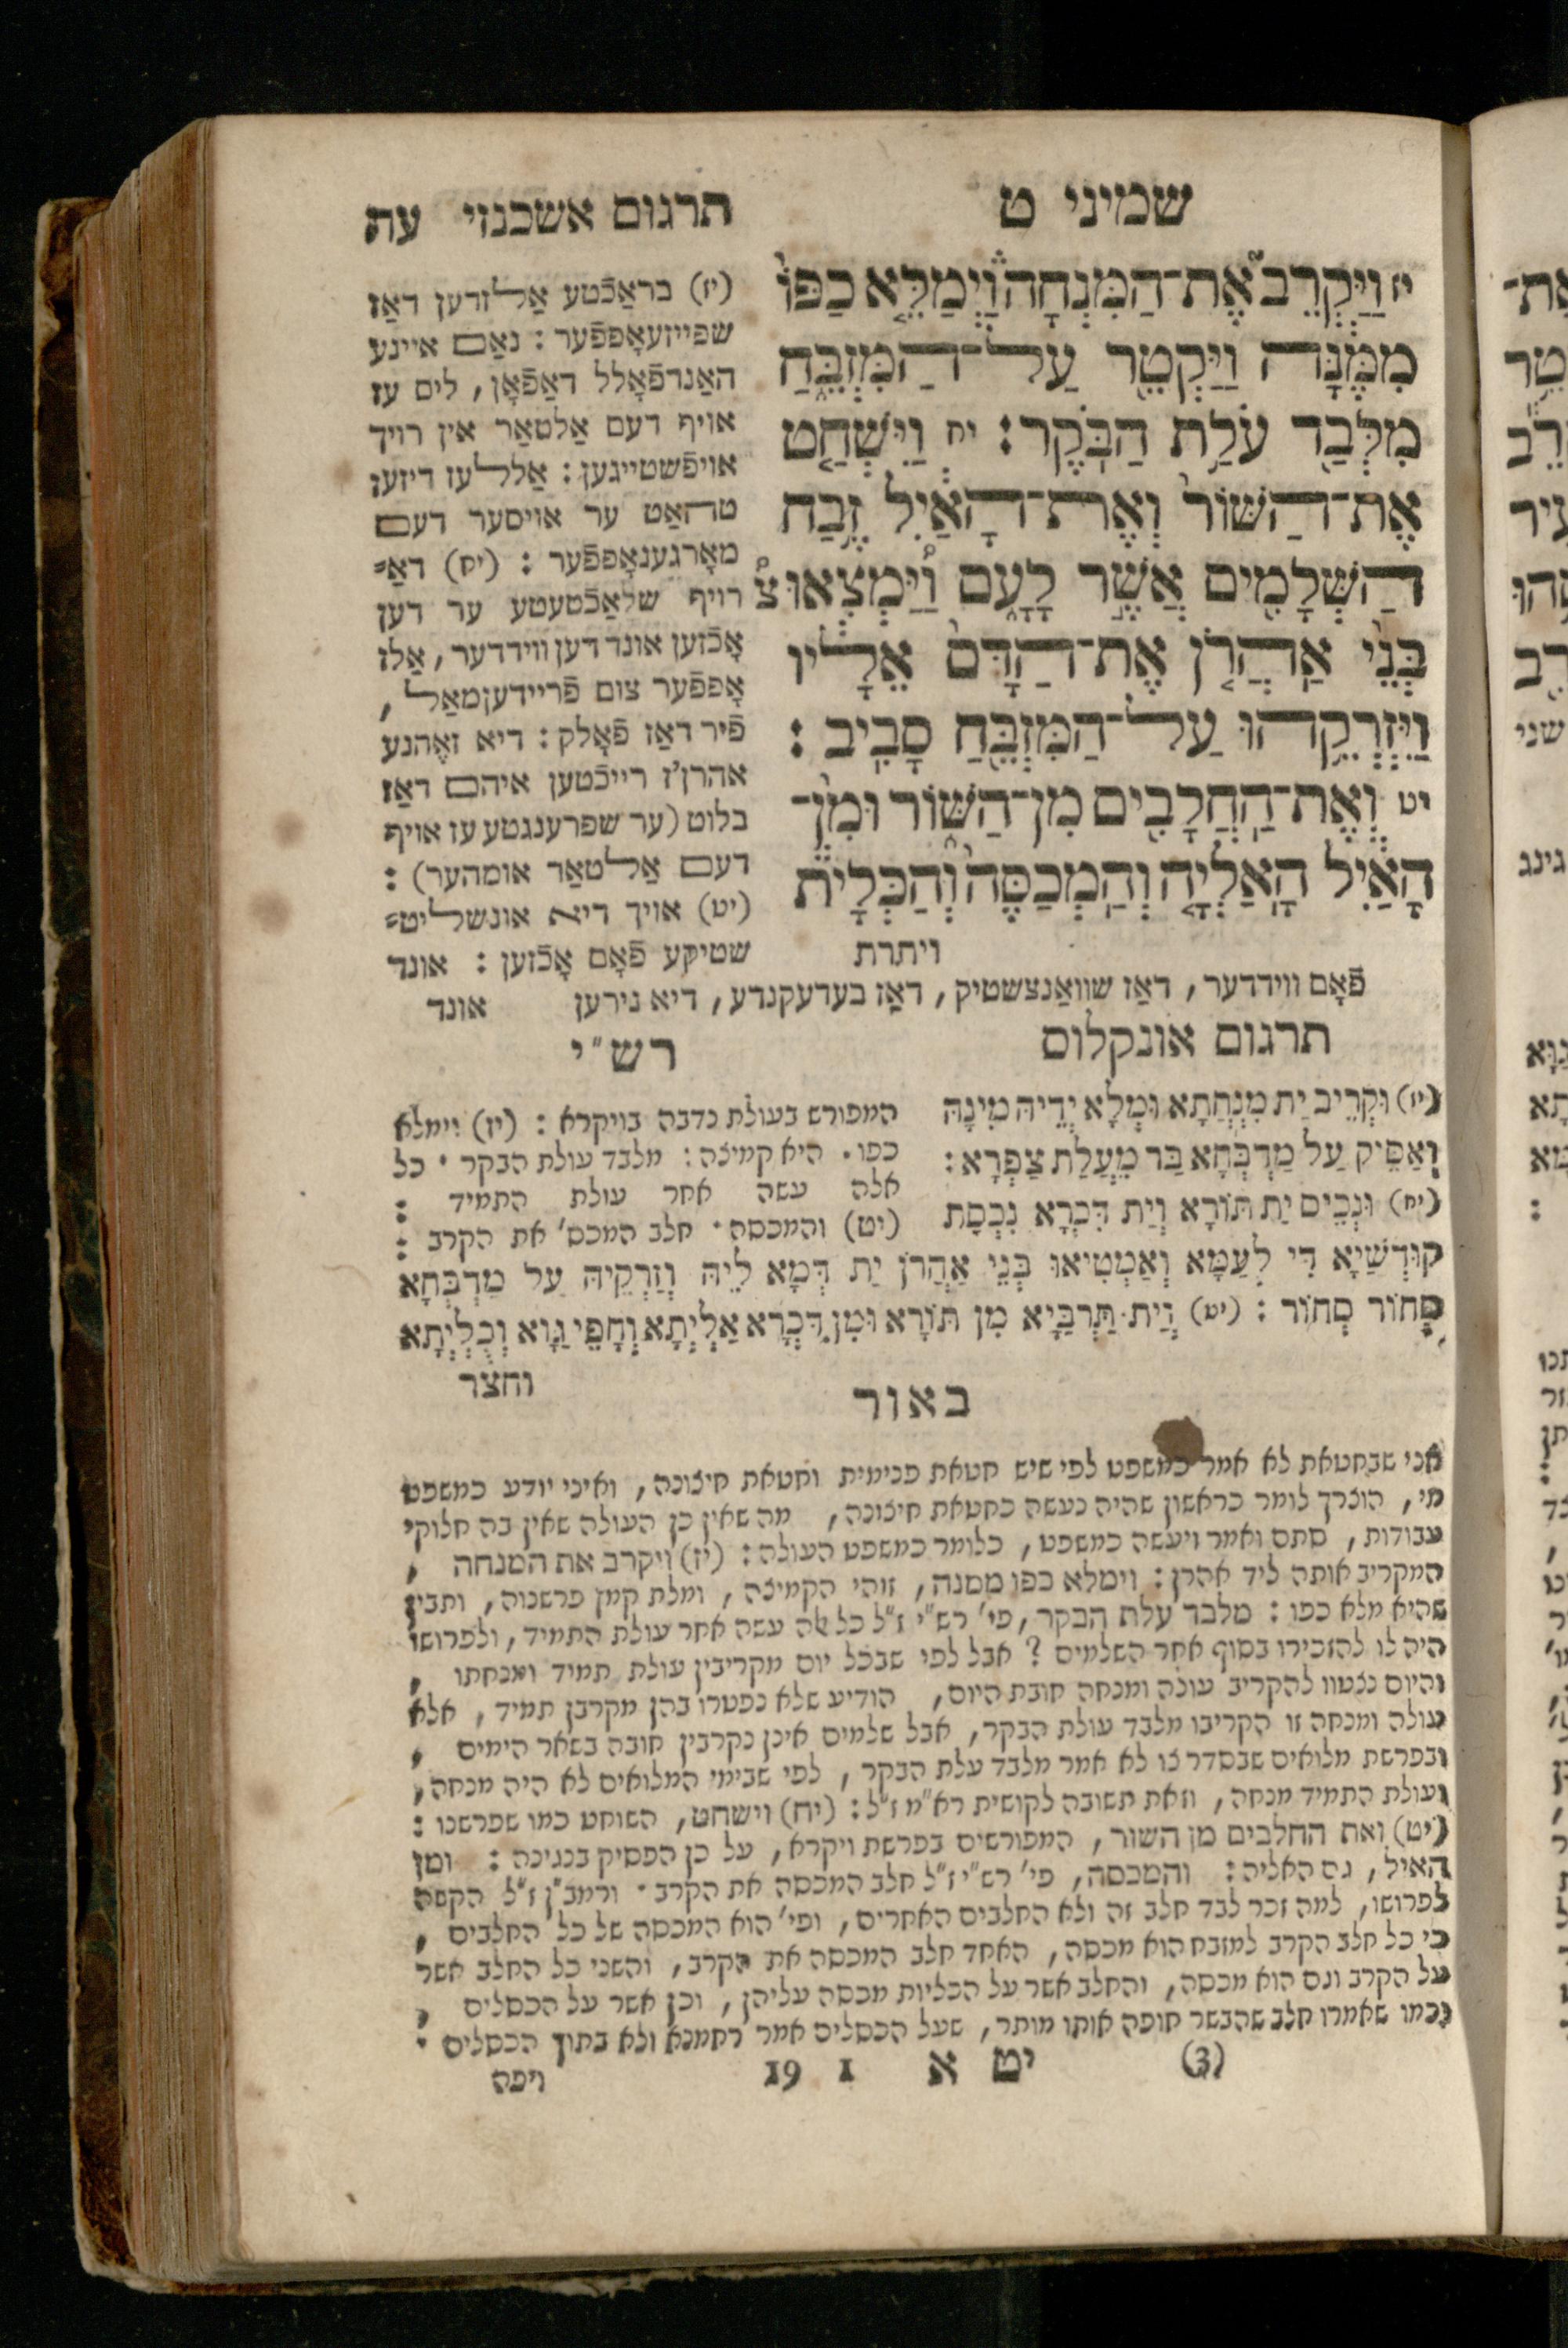 שמיני ט
תרגום אשכנזי עה
יז וַיַּקְרֵב֮ אֶת־הַמִּנְחָה֒ וַיְמַלֵּ֤א כַפּוֹ֙
מִמֶּ֔נָּה וַיַּקְטֵ֖ר עַל־הַמִּזְבֵּ֑חַ
מִלְּבַ֖ד עֹלַ֥ת הַבֹּֽקֶר׃ יח וַיִּשְׁחַ֤ט
אֶת־הַשּׁוֹר֙ וְאֶת־הָאַ֔יִל זֶ֥בַח
הַשְּׁלָמִ֖ים אֲשֶׁ֣ר לָעָ֑ם וַ֠יַּמְצִאוּ צ
בְּנֵ֨י אַהֲרֹ֤ן אֶת־הַדָּם֙ אֵלָ֔יו
וַיִּזְרְקֵ֥הוּ עַל־הַמִּזְבֵּ֖חַ סָבִֽיב׃
יט וְאֶת־הַחֲלָבִ֖ים מִן־הַשּׁ֑וֹר וּמִן־
הָאַ֔יִל הָֽאַלְיָ֤ה וְהַֽמְכַסֶּה֙ וְהַכְּלָיֹ֔ת
ויתרת
(יז) בראַכֿטע אַלזדען דאַז
שפייזעאָפפֿער : נאַם איינע
האַנדפֿאָלל דאַפֿאָן, ליס עז
אויף דעם אַלטאַר אין רויך
אויפֿשטייגען : אַללעז דיזעז
טהאַט ער אויסער דעם
מאָרגענאָפפֿער : (יח) דאַ=
רויף שלאַכֿטעטע ער דען
אָכֿזען אונד דען ווידדער, אַלז
אָפפֿער צום פֿריידענמאַל,
פֿיר דאַז פֿאָלק : דיא זאֶהנע
אהרן'ז רייכֿטען איהם דאַז
בלוט (ער שפרענגטע עז אויף
דעם אַלטאַר אומהער) :
(יט) אויך דיא אונשליט=
שטיקע פֿאָם אָכֿזען : אונד
פֿאָם ווידדער, דאַז שוואַנצשטיק, דאַז בעדעקנדע, דיא נירען אונד
תרגום אונקלוס
(יז) וְקָרֵיב יַת מִנְחָתָא וּמְלָא יְדֵיהּ מִינַהּ
וְאַסֵּיק עַל מַדְבְּחָא בַּר מֵעֲלַת צַפְרָא :
(יח) וּנְכֵיס יַת תּוֹרָא וְיַת דִּכְרָא נִכְסַת
קוּדְשַׁיָא דִּי לְעַמָּא וְאַמְטִיאוּ בְּנֵי אַהֲרֹן יַת דְּמָא לֵיהּ וְזַרְקֵיהּ עַל מַדְבְּחָא
סְחוֹר סְחוֹר : (יט) וְיַת תַּרְבַּיָא מִן תּוֹרָא וּמִן דִּכְרָא אַלְיְתָא וְחָפֵי גַּוָּא וְכֻלְיְתָא
וחצר
רש"י
המפורש בעולת נדבה בויקרא : (יז) וימלא
כפו. היא קמיצה : מלבד עולת הבקר. כל
אלה עשה אחר עולת התמיד :
(יט) והמכסה. חלב המכס' את הקרב :
באור
אני שבחטאת לא אמר כמשפט לפי שיש חטאת פנימית וחטאת חיצונה, ואיני יודע כמשפט
מי, הוצרך לומר כראשון שהיה נעשה כחטאת חיצונה, מה שאין כן העולה שאין בה חלוקי
עבודות, סתם ואמר ויעשה כמשפט, כלומר כמשפט העולה : (יז) ויקרב את המנחה,
המקריב אותה ליד אהרן : וימלא כפו ממנה, זוהי הקמיצה, ומלת קמץ פרשנוה, ותבין
שהיא מלא כפו : מלבד עלת הבקר, פי' רש"י ז"ל כל אלה עשה אחר עולת התמיד, ולפרושו
היה לו להזכירו בסוף אחר השלמים ? אבל לפי שבכל יום מקריבין עולת תמיד ומנחתו,
והיום נצטוו להקריב עולה ומנחה חובת היום, הודיע שלא נפטרו בהן מקרבן תמיד, אלא
עולה ומנחה זו הקריבו מלבד עולת הבקר, אבל שלמים אינן נקרבין חובה בשאר הימים,
ובפרשת מלואים שבסדר צו לא אמר מלבד עלת הבקר, לפי שבימי המלואים לא היה מנחה,
ועולת התמיד מנחה, וזאת תשובה לקושית רא"מ ז"ל : (יח) וישחט, השוחט כמו שפרשנו :
(יט) ואת החלבים מן השור, המפורשים בפרשת ויקרא, על כן הפסיק בנגינה : ומן
האיל, גם האליה : והמכסה, פי' רש"י ז"ל חלב המכסה את הקרב. ורמב"ן ז"ל הקשה
לפרושו, למה זכר לבד חלב זה ולא החלבים האחרים, ופי' הוא המכסה של כל החלבים,
כי כל חלב הקרב למזבח הוא מכסה, האחד חלב המכסה את הקרב, והשני כל החלב אשר
על הקרב וגם הוא מכסה, והחלב אשר על הכליות מכסה עליהן, וכן אשר על הכסלים,
וכמו שאמרו חלב שהבשר חופה אותו מותר, שעל הכסלים אמר רחמנא ולא בתוך הכסלים :
(3) יט א 1 19 ויפה